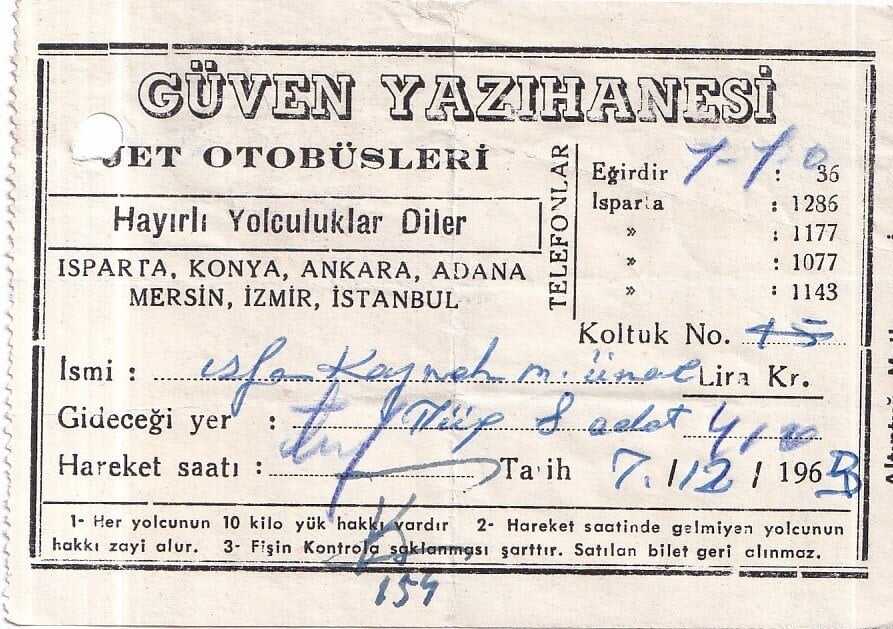 GÜVEN YAZIHANESİ
JET OTOBÜSLERİ
Hayırlı Yolculuklar Diler
ISPARTA, KONYA, ANKARA, ADANA
MERSİN, İZMİR, İSTANBUL
TELEFONLAR
Eğirdir : 36
Isparta : 1286
» : 1177
» : 1077
» : 1143
Koltuk No. 15
İsmi : m. ünal Lira Kr.
Gideceği yer : 8 adet
Hareket saatı : Tarih 7./12/1963
1- Her yolcunun 10 kilo yük hakkı vardır 2- Hareket saatinde gelmiyen yolcunun
hakkı zayi alur. 3- Fişin Kontrola saklanması şarttır. Satılan bilet geri alınmaz.
154